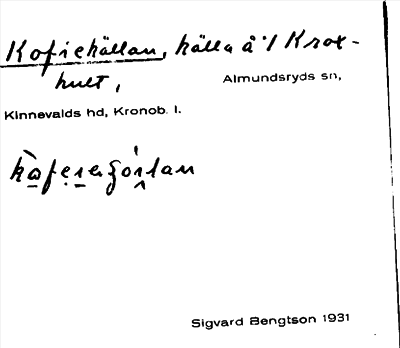 Kofiekällan, källa å 1/1 Krox-
hult, Almundsryds sn,
Kinnevalds hd, Kronob. l.
Sigvard Bengtson 1931